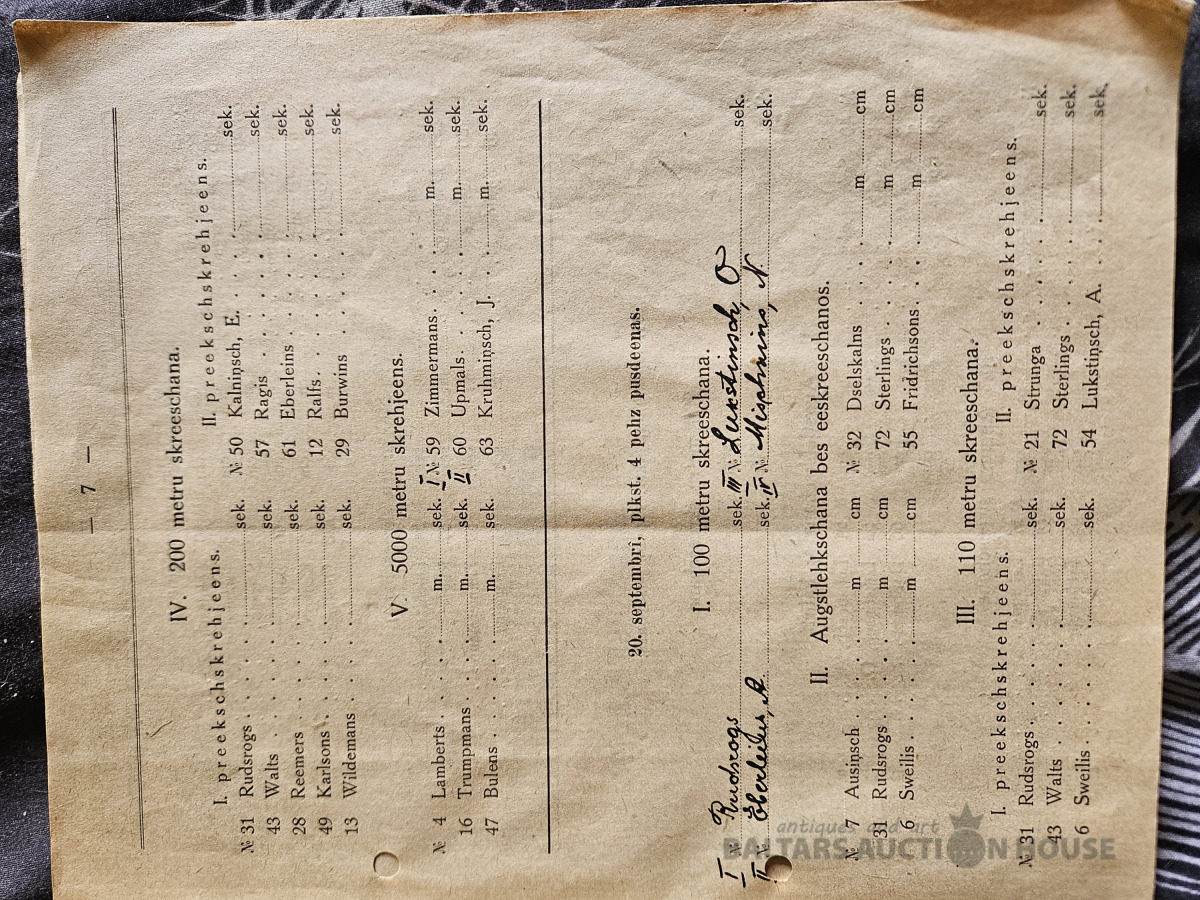 — 7 —
IV. 200 metru skreeschana.
I. preekschskrehjeens. II. preekschskrehjeens.
№ 31 Rudsrogs . . . . sek. № 50 Kalniņsch, E. . . . sek.
43 Walts . . . . . sek. 57 Ragis . . . . . sek.
28 Reemers . . . . sek. 61 Eberleins . . . . sek.
49 Karlsons . . . . sek. 12 Ralfs . . . . . sek.
13 Wildemans . . . . sek. 29 Burwins . . . . sek.
V. 5000 metru skrehjeens.
№ 4 Lamberts . . . . m. sek. I № 59 Zimmermans . . . m. sek.
16 Trumpmans . . . m. sek. II 60 Upmals . . . . m. sek.
47 Bulens . . . . . m. sek. 63 Kruhmiņsch, J. . . m. sek.
20. septembrî, plkst. 4 pehz pusdeenas.
I. 100 metru skreeschana.
I № Rudsrogs sek. III № Lukstinsch, O sek.
II № Eberleins, A. sek. IV № Mischnins, N. sek.
II. Augstlehkschana bes eeskreeschanos.
№ 7 Ausiņsch . . . . m cm № 32 Dselskalns . . . m cm
31 Rudsrogs . . . . m cm 72 Sterlings . . . . m cm
6 Sweilis . . . . . m cm 55 Fridrichsons . . . m cm
III. 110 metru skreeschana.
I. preekschskrehjeens. II. preekschskrehjeens.
№ 31 Rudsrogs . . . . sek. № 21 Strunga . . . . sek.
43 Walts . . . . . sek. 72 Sterlings . . . . sek.
6 Sweilis . . . . . sek. 54 Lukstiņsch, A. . . . sek.
antiques and art
BALTARS AUCTION HOUSE